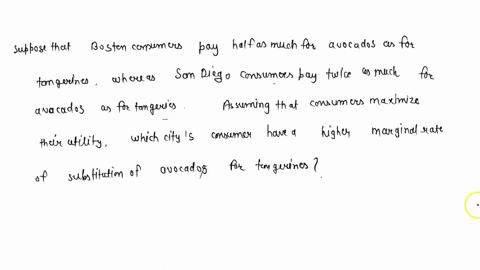 suppose that Boston consumers pay half as much for avocados as for
tangerines, whereas San Diego consumers pay twice as much for
avocados as for tangeries. Assuming that consumers maximize
their utility, which city's consumer have a higher marginal rate
of substitution of avocados for tangerines?